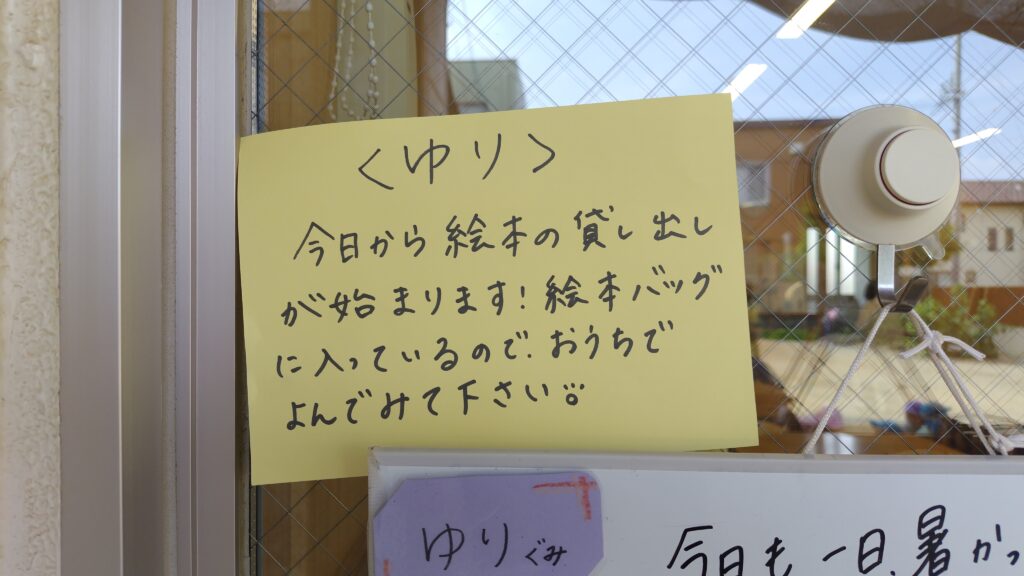 <ゆり>
今日から絵本の貸し出し
が始まります!絵本バッグ
に入っているので、おうちで
よんでみて下さい
ゆりぐみ
今日も一日、暑かっ